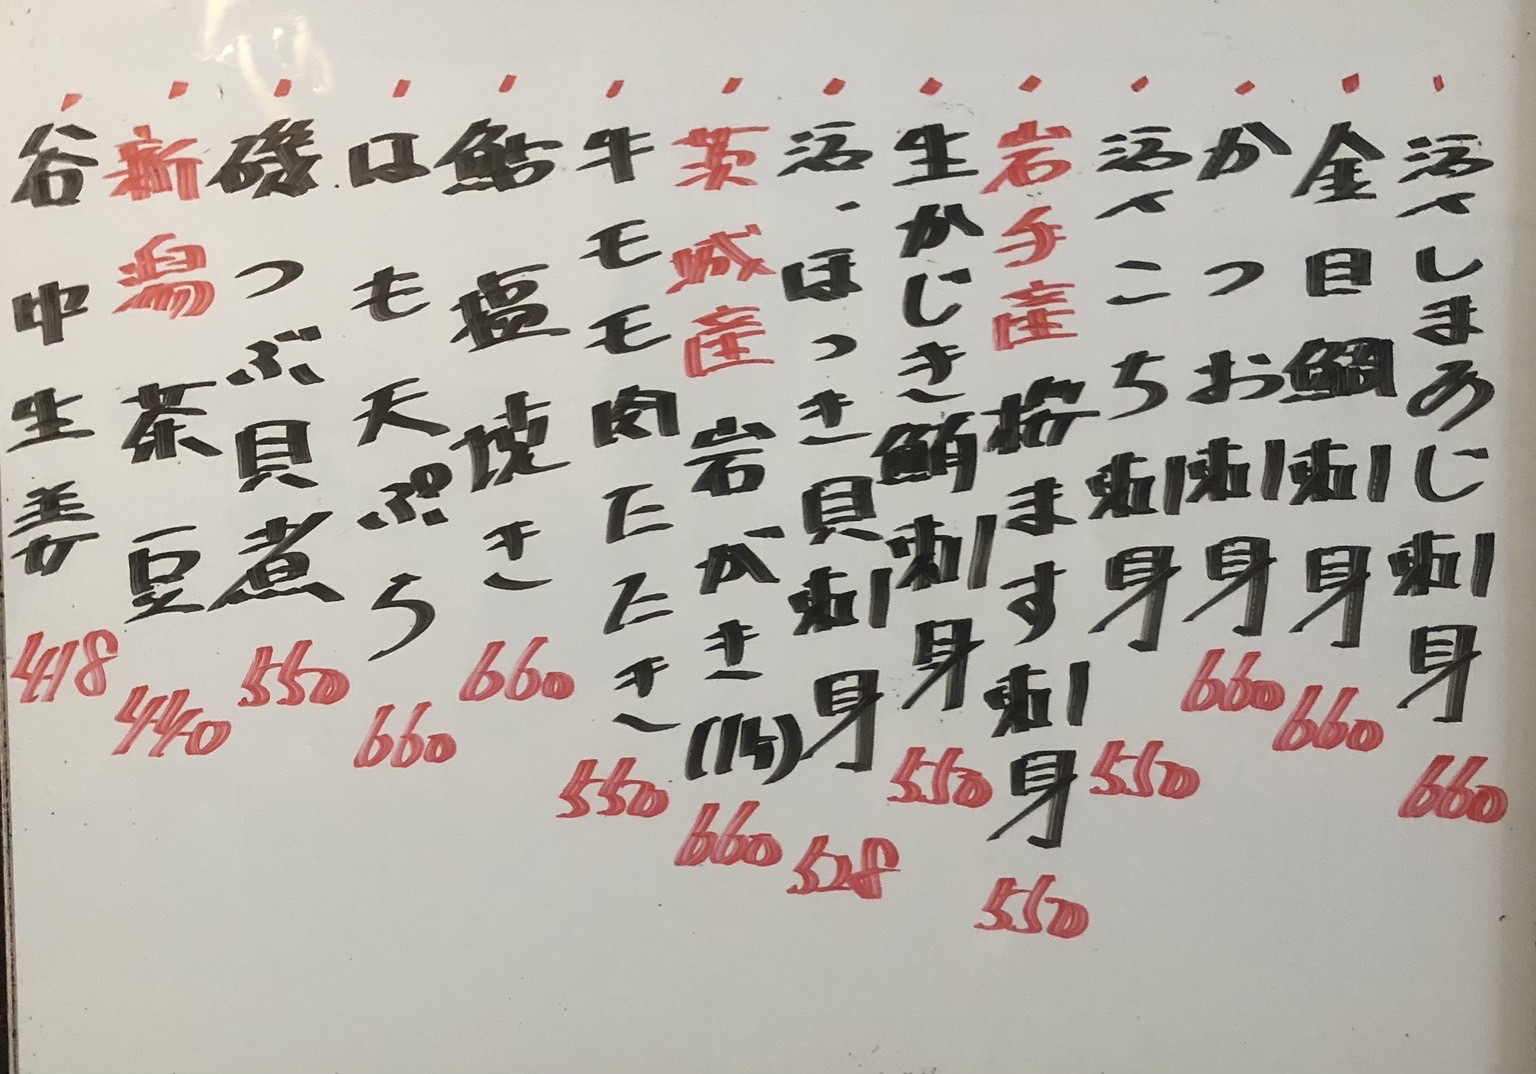 活〆しまあじ刺身 660
金目鯛刺身 660
かつお刺身 660
活〆こち刺身 550
岩手産 桜ます刺身 550
生かじき鮪刺身 550
活・ほっき貝刺身 528
茨城産 岩がき(1ケ) 660
牛モモ肉たたき 550
鮎塩焼き 660
はも天ぷら 660
磯つぶ貝煮 550
新潟 茶豆 440
谷中生姜 418